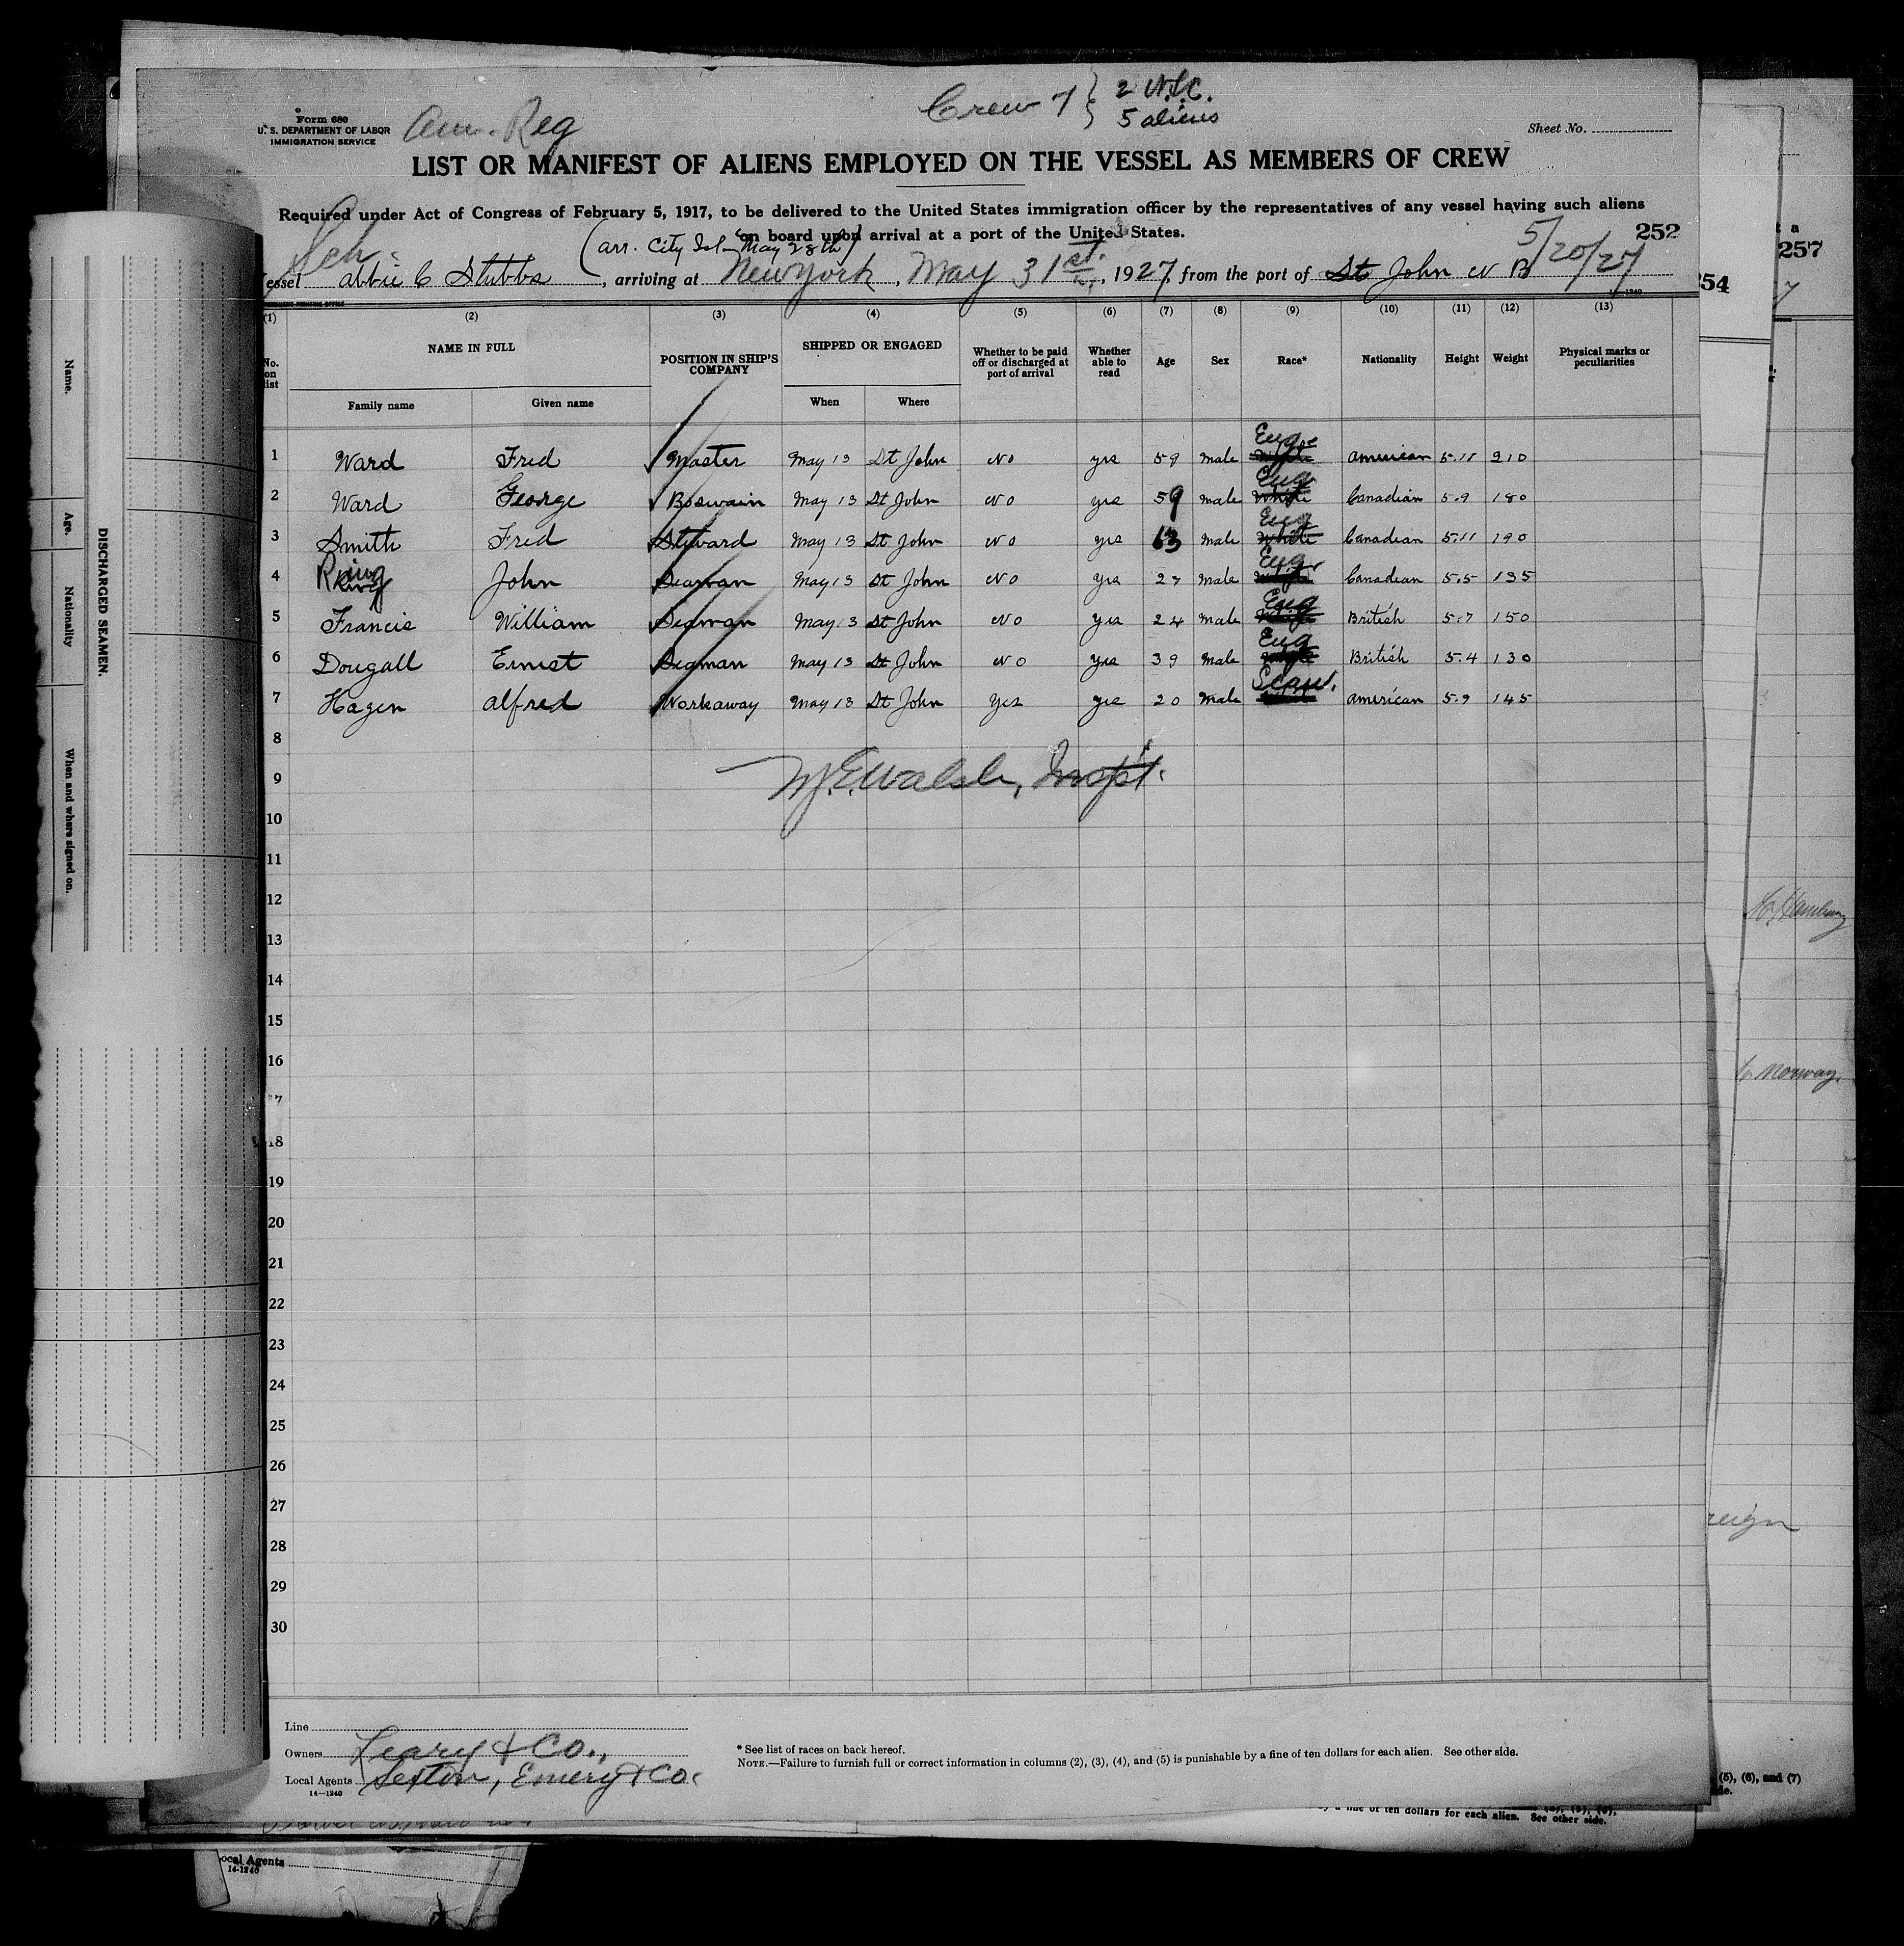 Form 680
U. S. DEPARTMENT OF LABOR
IMMIGRATION SERVICE
Am. Reg
Crew 7 } 2 U.S.C.
5 aliens
Sheet No.
LIST OR MANIFEST OF ALIENS EMPLOYED ON THE VESSEL AS MEMBERS OF CREW
Required under Act of Congress of February 5, 1917, to be delivered to the United States immigration officer by the representatives of any vessel having such aliens
on board upon arrival at a port of the United States.
252
Sch. (arr. City Isl. May 28th) 5/20/27
essel Abbie C Stubbs, arriving at New York, May 31st, 1927, from the port of St John N B
(1) (2) (3) (4) (5) (6) (7) (8) (9) (10) (11) (12) (13)
No. on list NAME IN FULL POSITION IN SHIP'S COMPANY SHIPPED OR ENGAGED Whether to be paid off or discharged at port of arrival Whether able to read Age Sex Race* Nationality Height Weight Physical marks or peculiarities
Family name Given name When Where
1 Ward Fred Master May 13 St John No yes 59 male Eng American 5.11 210
2 Ward George Boswain May 13 St John No yes 59 male White Eng Canadian 5.9 180
3 Smith Fred Steward May 13 St John No yes 63 male White Eng Canadian 5.11 190
4 King Ring John Seaman May 13 St John No yes 27 male Eng Canadian 5.5 135
5 Francis William Seaman May 13 St John No yes 24 male Eng British 5.7 150
6 Dougall Ernest Seaman May 13 St John No yes 39 male Eng British 5.4 130
7 Hagen Alfred Workaway May 13 St John Yes yes 20 male Scand. American 5.9 145
8
9
W.E. Walsh, Insp't.
10
11
12
13
14
15
16
17
18
19
20
21
22
23
24
25
26
27
28
29
30
Line
Owners Leary & Co.,
Local Agents Sexton, Emery & Co.
14—1240
* See list of races on back hereof.
NOTE.—Failure to furnish full or correct information in columns (2), (3), (4), and (5) is punishable by a fine of ten dollars for each alien. See other side.
DISCHARGED SEAMEN.
Name.
Age.
Nationality
When and where signed on.
254
257
to Hamburg
to Norway.
reign
(5), (6), and (7)
of ten dollars for each alien. See other side.
ocal Agents
14-1240